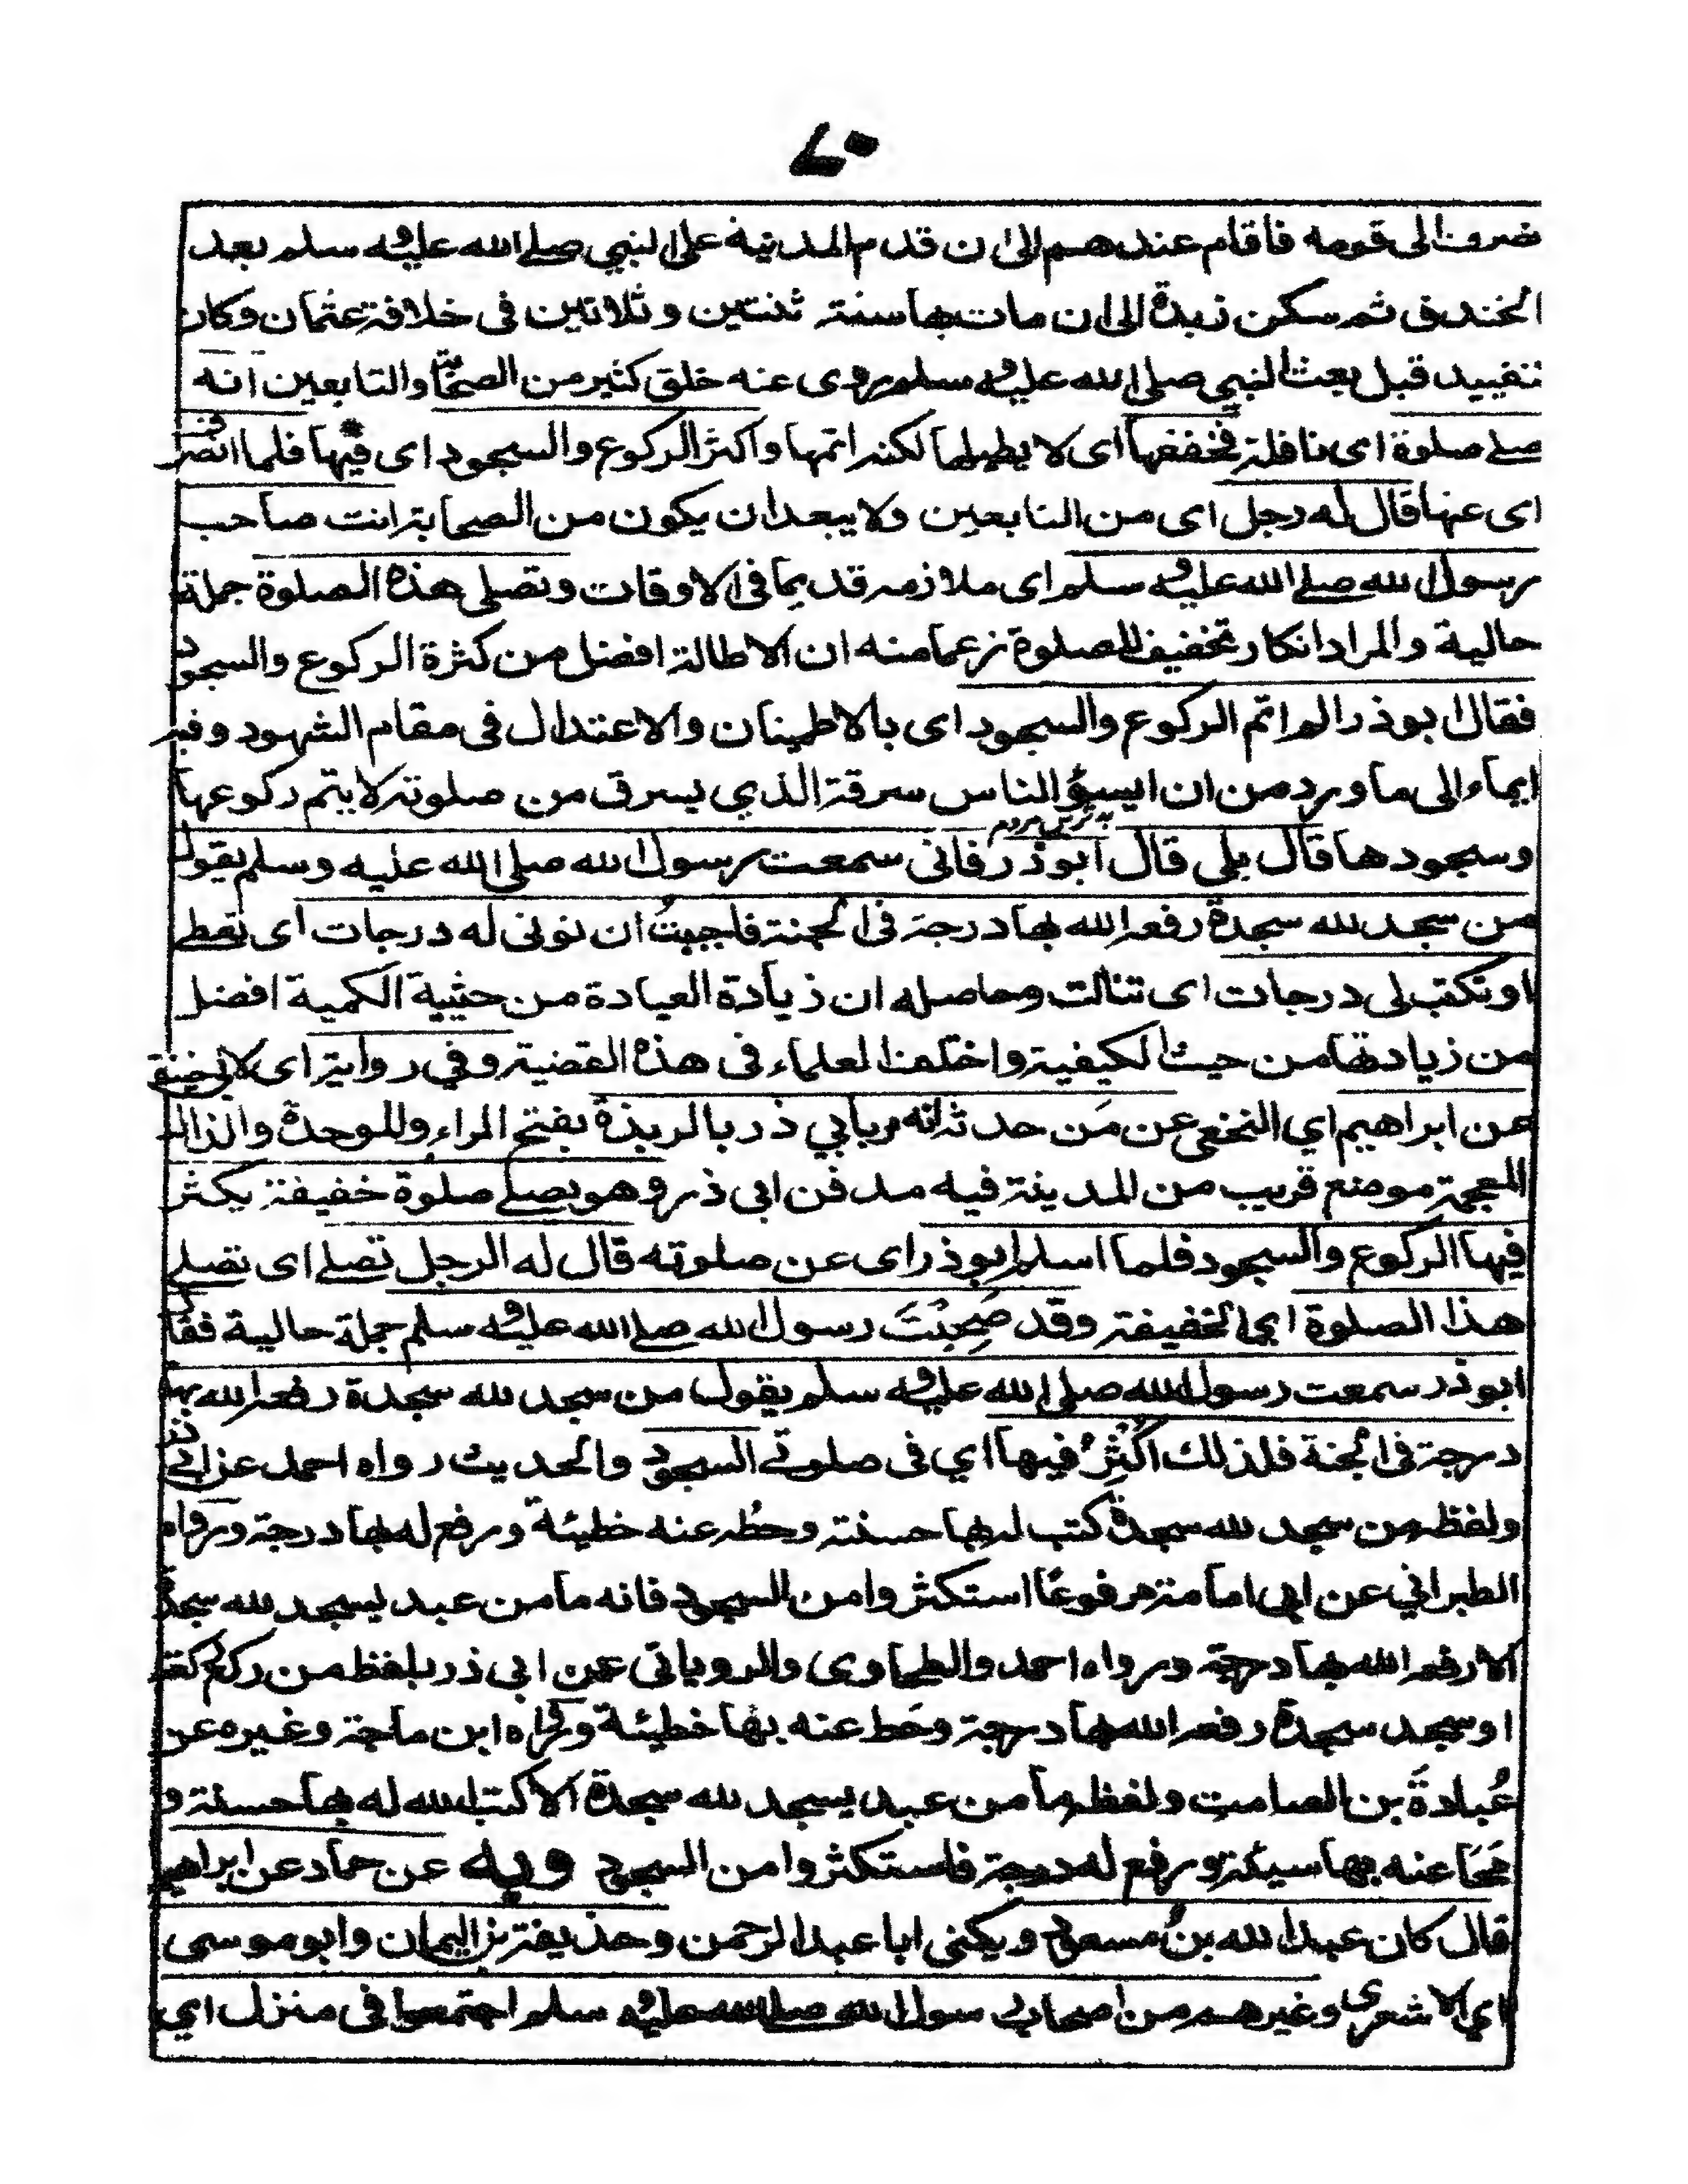 ٧٠
نصرف الى قومه فاقام عندهم الى ان قدم المدينة على النبي صلے الله علیه وسلم بعد
الخندق ثم سكن زبدة الى ان مات بها سنة ثنتين وثلاثين فى خلافة عثمان وكان
قبل بعث النبي صلى الله عليه وسلم روى عنه خلق كثير من الصحابة والتابعين انه
صلے صلوة اى نافلة فخففها اى لا يطيلها لكنه اتمها واكثر الركوع والسجود اى فيها فلما انصرف
اى عنها قال له رجل اى من التابعين ولا يبعد ان يكون من الصحابة انت صاحب
رسول الله صلے الله عليه وسلم اى ملازمه قديما فى الاوقات وتصلى هذه الصلوة جملة
حالية والمراد انكار تخفيف الصلوة زعما منه ان الاطالة افضل من كثرة الركوع والسجود
فقال ابوذر الم اتم الركوع والسجود اى بالاطمينان والاعتدال فى مقام الشهود وفيه
ايماء الى ما ورد من ان اسوؤ الناس سرقة الذي يسرق من صلوته لا يتم ركوعها
بدترين مردم
وسجودها قال بلى قال ابوذر فانى سمعت رسول الله صلى الله عليه وسلم يقول
من سجد لله سجدة رفعه الله بها درجة فى الجنة فاحببتُ ان تؤتى له درجات اى تعطى
او تكتب لى درجات اى تنالت وحاصله ان زيادة العبادة من حيثية الكمية افضل
من زيادتها من حيث الكيفية واختلف العلماء فى هذه القضية وفي رواية اى لابي حنيفة
عن ابراهيم اي النخعي عن مَن حدثه انه مر بابي ذر بالربذة بفتح الراء والموحدة والذال
المعجمة موضع قريب من المدينة فيه مدفن ابى ذر وهو يصلے صلوة خفيفة يكثر
فيها الركوع والسجود فلما اسلم ابوذر اى عن صلوته قال له الرجل تصلے اى تصلے
هذا الصلوة اي الخفيفة وقد صَحِبْتَ رسول الله صلے الله عليه وسلم جملة حالية فقال
ابوذر سمعت رسول الله صلى الله عليه وسلم يقول من سجد لله سجدة رفعه الله بها
درجة فى الجنة فلذلك اُكْثِرُ فيها اي فى صلوتے السجود والحديث رواه احمد عن ابى ذر
ولفظه من سجد لله سجدة كتب له بها حسنة وحُط عنه خطيئة ورفع له بها درجة ورواه
الطبراني عن ابى امامة مرفوعًا استكثروا من السجود فانه ما من عبد يسجد لله سجدة
الا رفعه الله بها درجة ورواه احمد والطحاوى والرويانى عن ابى ذر بلفظ من ركع ركعة
او سجد سجدة رفعه الله بها درجة وحَط عنه بها خطيئة ورواه ابن ماجة وغيره عن
عُبادةَ بن الصامت ولفظه ما من عبد يسجد لله سجدة الا كتب الله له بها حسنة و
مَحَا عنه بها سيئة ورفع له درجة فاستكثروا من السجود وبه عن حماد عن ابراهيم
قال كان عبد الله بن مسعود ويكنى ابا عبد الرحمن وحذيفة بن اليمان وابو موسى
اي الاشعرى وغيرهم من اصحاب رسول الله صلے الله عليه وسلم اجتمعوا فى منزل اي